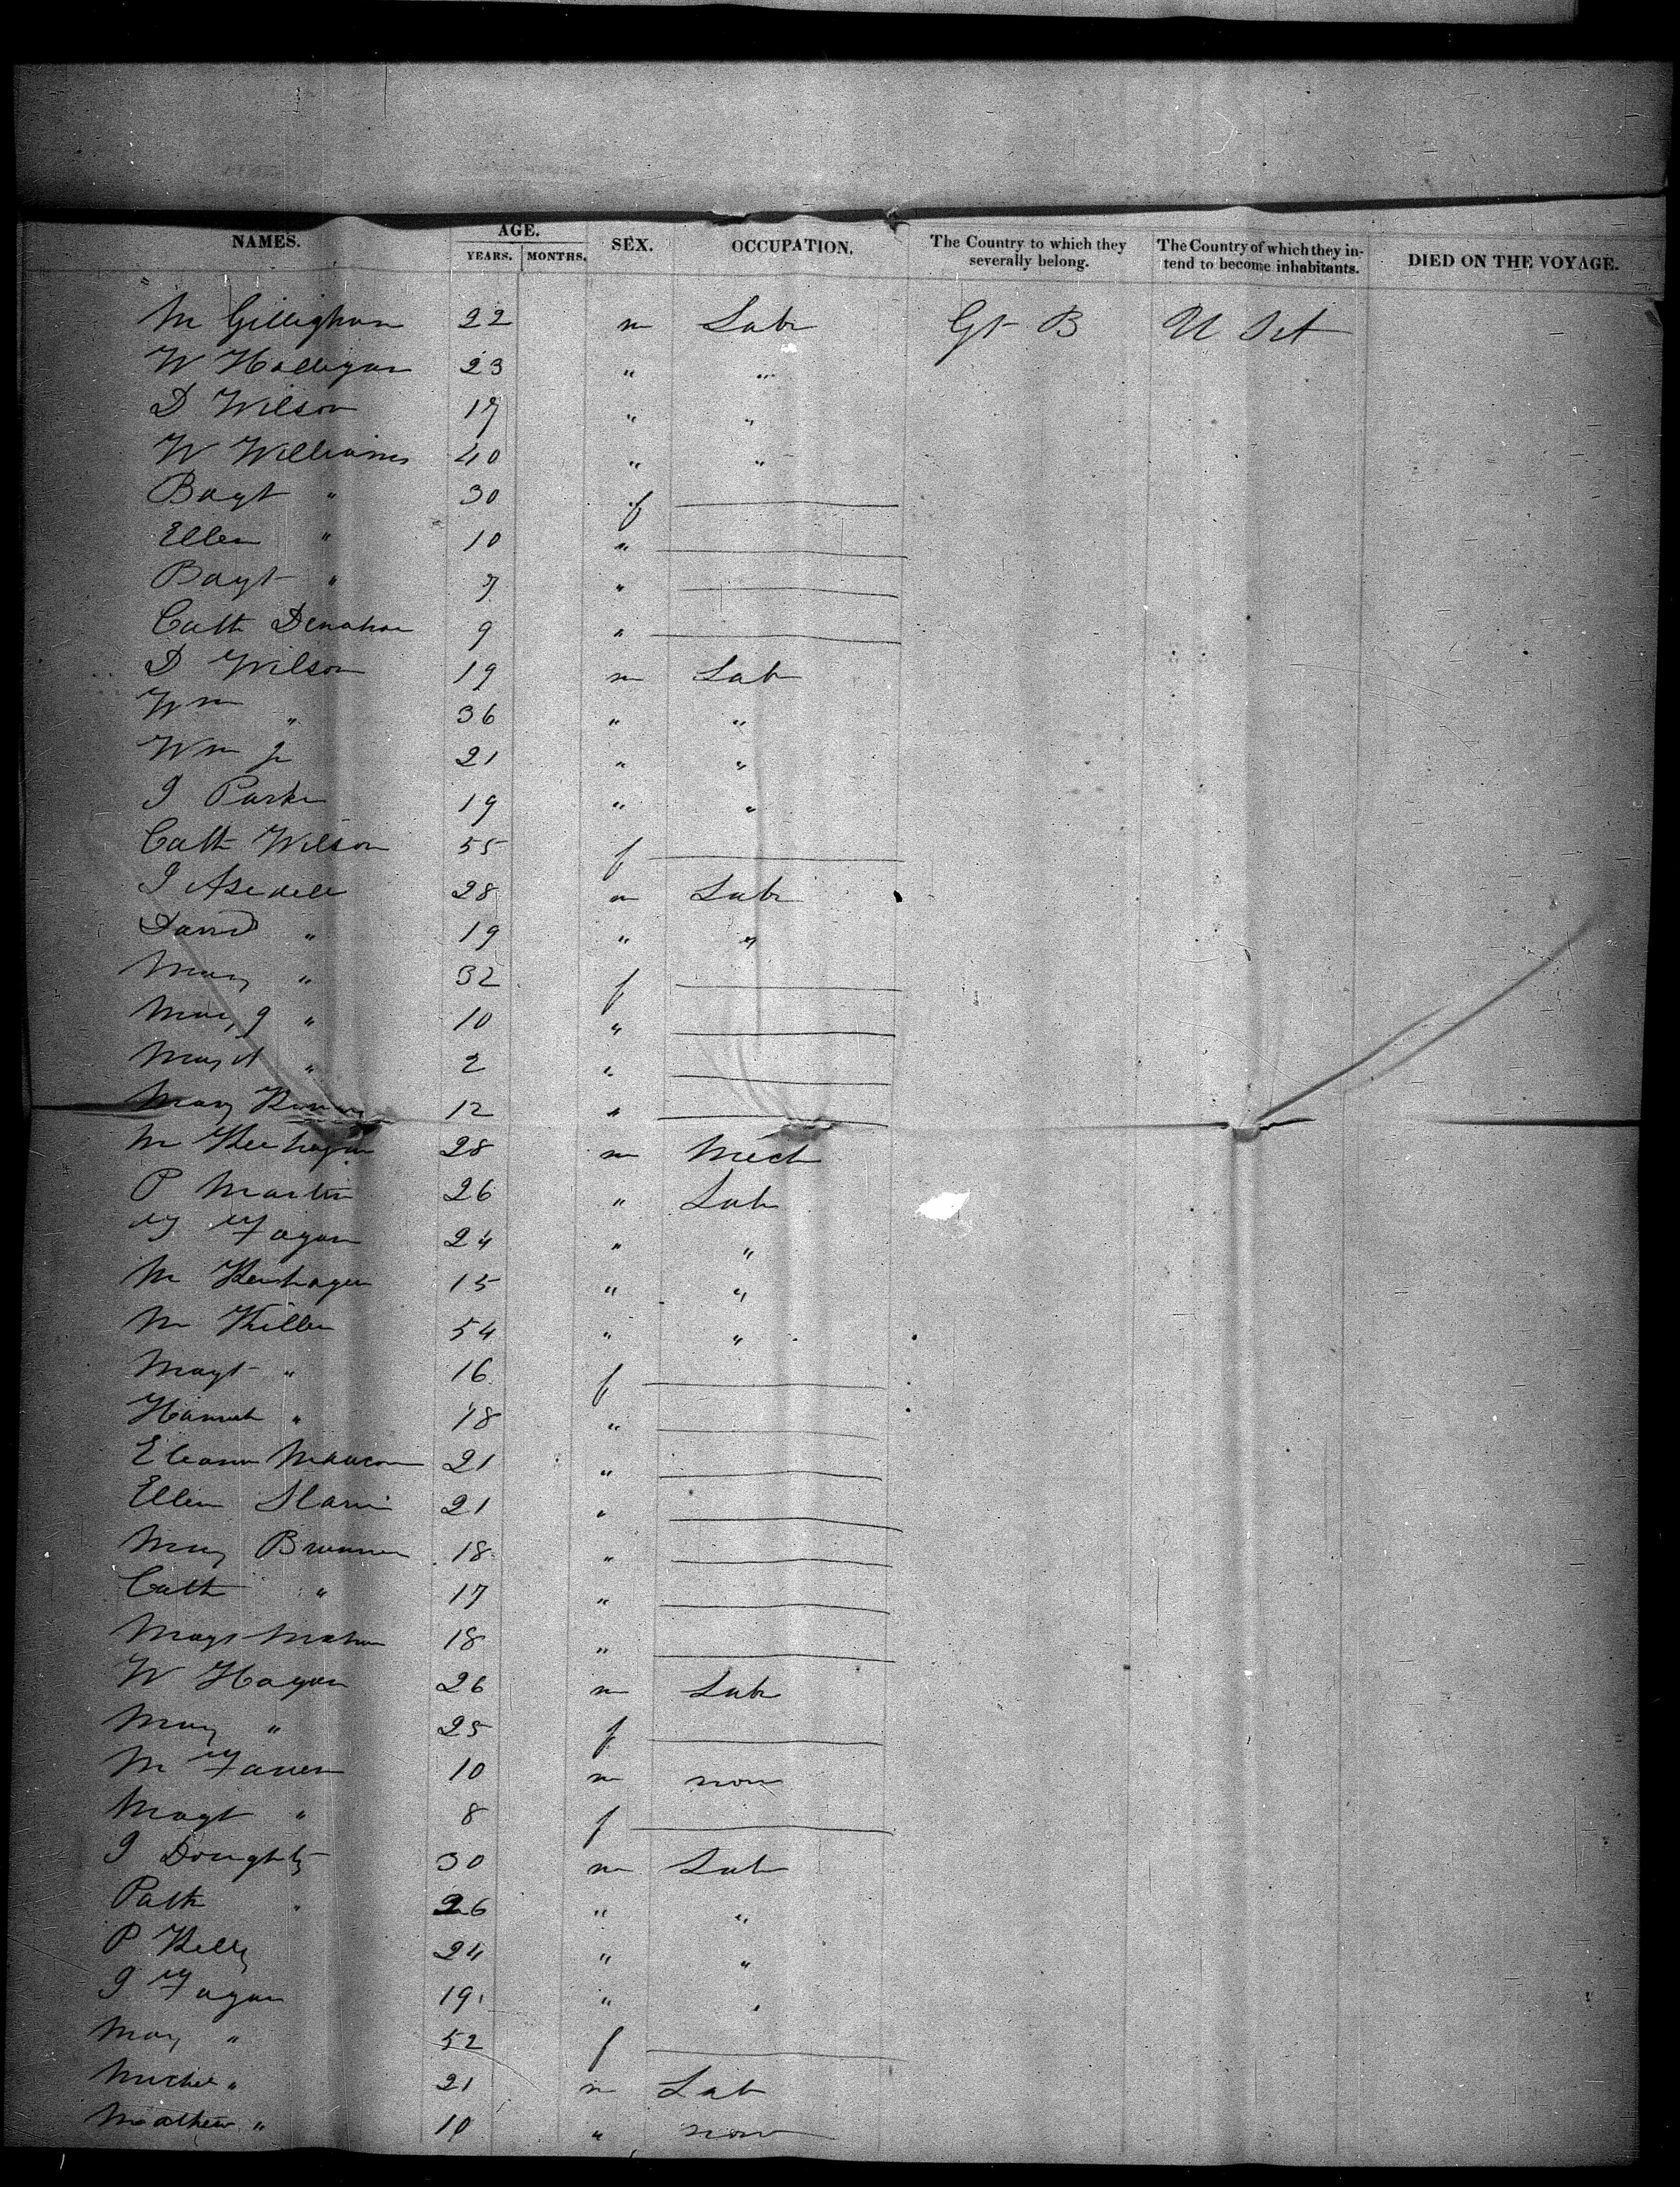 NAMES. AGE. YEARS. MONTHS. SEX. OCCUPATION. The Country to which they severally belong. The Country of which they intend to become inhabitants. DIED ON THE VOYAGE.
M Gillighan 22 m Labr Gt B U Sts
W Halligan 23 " "
D Wilson 17 " "
W Williams 40 " "
Bagt " 30 f
Ellen " 10 "
Bagt " 7 "
Cath Denahan 9 "
D Wilson 19 m Lab
Wm " 36 " "
Wm Jr 21 " "
J Parke 19 " "
Cath Wilson 55 f
J 28 m Labr
David " 19 " "
Mary " 32 f
Mary J " 10 "
Mary A " 2 "
Mary 12 "
M 28 m Mech
P Martin 26 " Lab
Fagan 24 " "
M Kenhagen 15 " "
M Killen 54 " "
Magt " 16 f
Hannah " 18 "
Eleanor 21 "
Ellen Slavin 21 "
Mary Brennan 18 "
Cath " 17 "
Magt Mahon 18 "
W Hagan 26 m Labr
Mary " 25 f
M Farren 10 m non
Magt " 8 f
J Doughty 30 m Lab
Patk " 26 " "
P Kelly 24 " "
J Fagan 19 " "
Mary " 52 f
Michel " 21 m Lab
Mathew " 10 " non